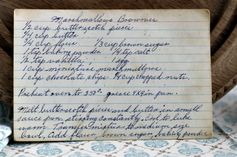 Marshmallow Brownies
½ cup butterscotch pieces
¼ cup butter
¾ cup flour ⅓ cup brown sugar
1 tsp. baking powder ¼ tsp salt
½ tsp. vanilla, 1 egg
1 cup miniature marshmallows
1 cup chocolate chips ¼ cup chopped nuts.
Preheat oven to 350° grease 9x9 in pan.
Melt butterscotch pieces and butter in small
sauce pan, stirring constantly. Cool to luke
warm. Transfer mixture to medium size
bowl. Add flour, brown sugar, baking powder